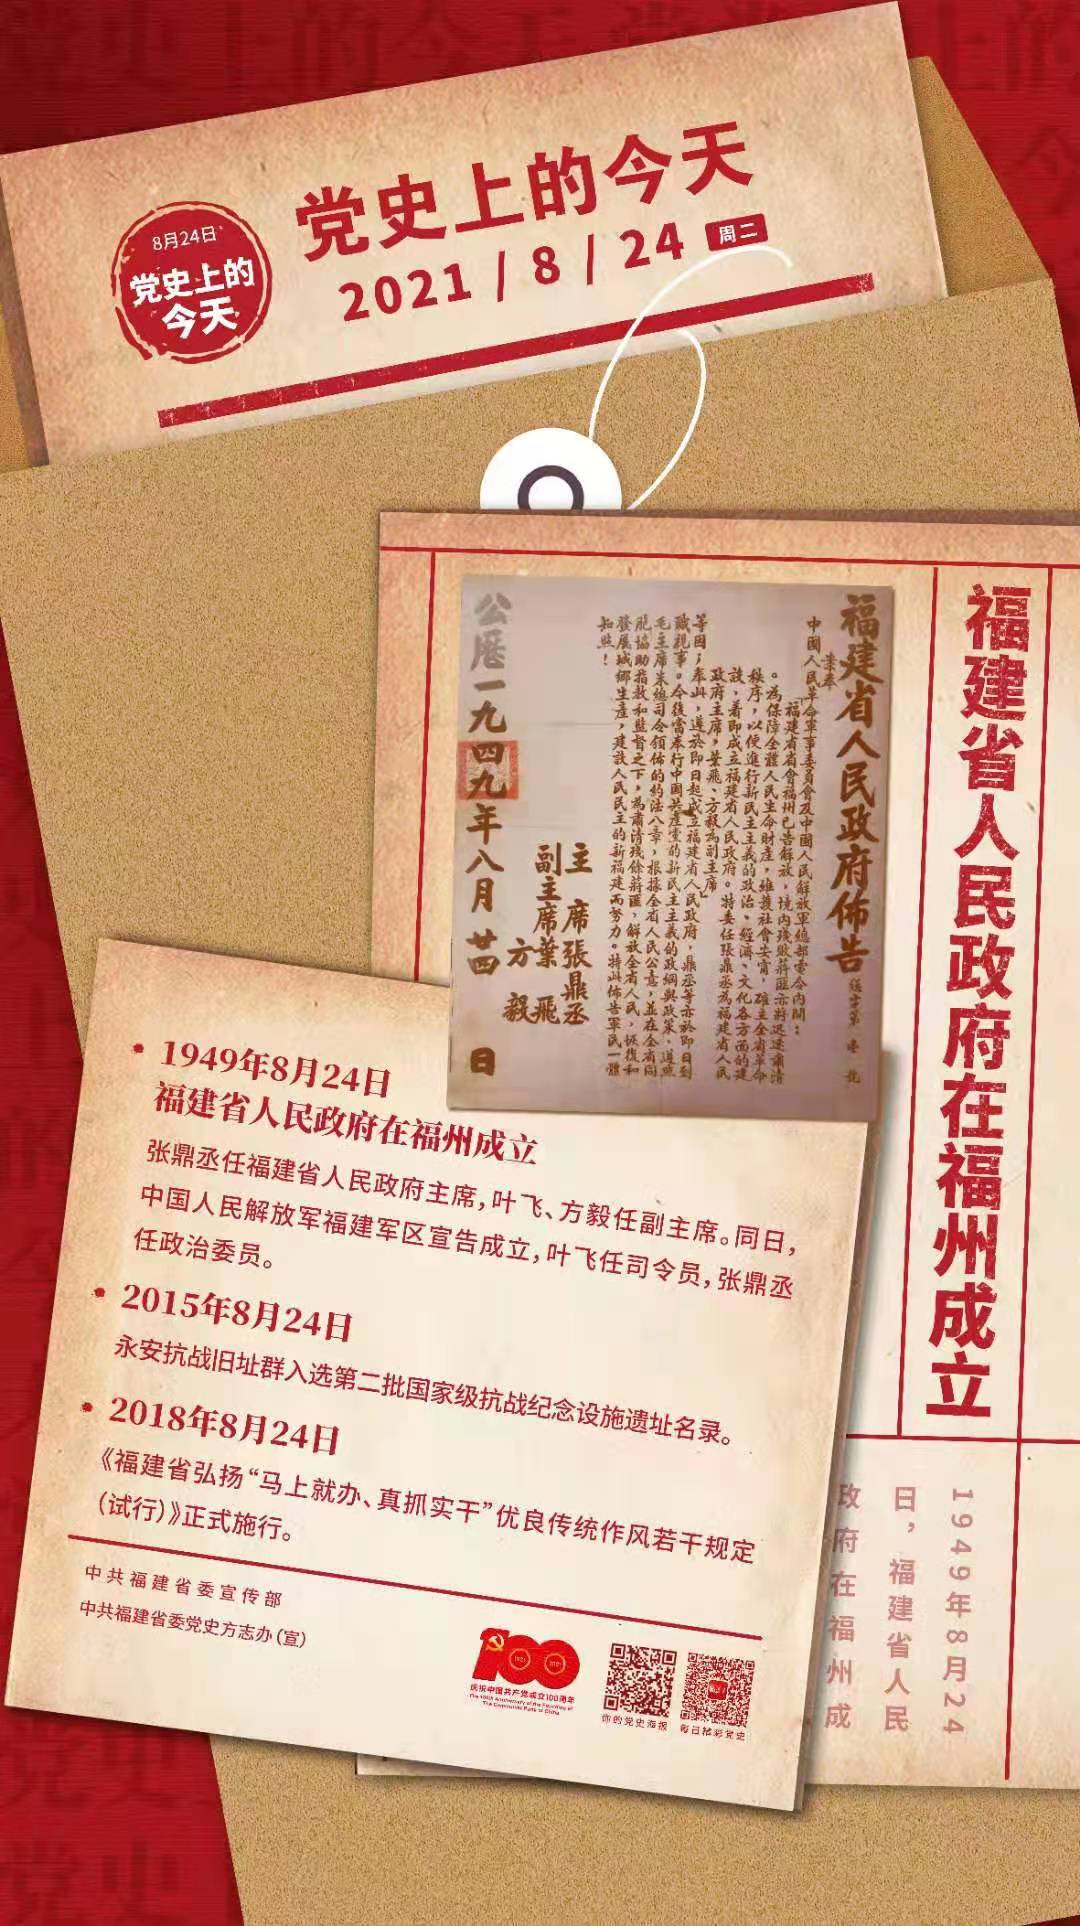 8月24日
党史上的
今天
党史上的今天
2021/8/24 周二
福建省人民政府在福州成立
福建省人民政府佈告
中國人民革命軍事委員會及中國人民解放軍總部電令內開：
「福建省省會福州已告解放，境內殘敗蔣匪亦將迅速肅清
。為保障全體人民生命財產，維護社會安甯，確立全省革命
秩序，以便進行新民主主義的政治、經濟、文化各方面的建
設，着即成立福建省人民政府。特委任張鼎丞為福建省人民
政府主席，葉飛、方毅為副主席」
等因；奉此，遵於即日起成立福建省人民政府，鼎丞等亦於即日到
職視事。今後當奉行中國共產黨的新民主主義的政綱與政策，遵照
毛主席朱總司令頒佈的約法八章，根據全省人民公意，並在全省同
胞協助指教和監督之下，為肅清殘餘蔣匪，解放全省人民，恢復和
發展城鄉生產，建設人民民主的新福建而努力。特此佈告軍民一體
知照！
主席張鼎丞
副主席葉飛
方毅
公歷一九四九年八月廿四日
1949年8月24日
福建省人民政府在福州成立
张鼎丞任福建省人民政府主席，叶飞、方毅任副主席。同日，
中国人民解放军福建军区宣告成立，叶飞任司令员，张鼎丞
任政治委员。
2015年8月24日
永安抗战旧址群入选第二批国家级抗战纪念设施遗址名录。
2018年8月24日
《福建省弘扬“马上就办、真抓实干”优良传统作风若干规定
（试行）》正式施行。
中共福建省委宣传部
中共福建省委党史方志办（宣）
1921 2021
庆祝中国共产党成立100周年
The 100th Anniversary of the Founding of
The Communist Party of China
你的党史海报
每日精彩党史
1949年8月24
日，福建省人民
政府在福州成